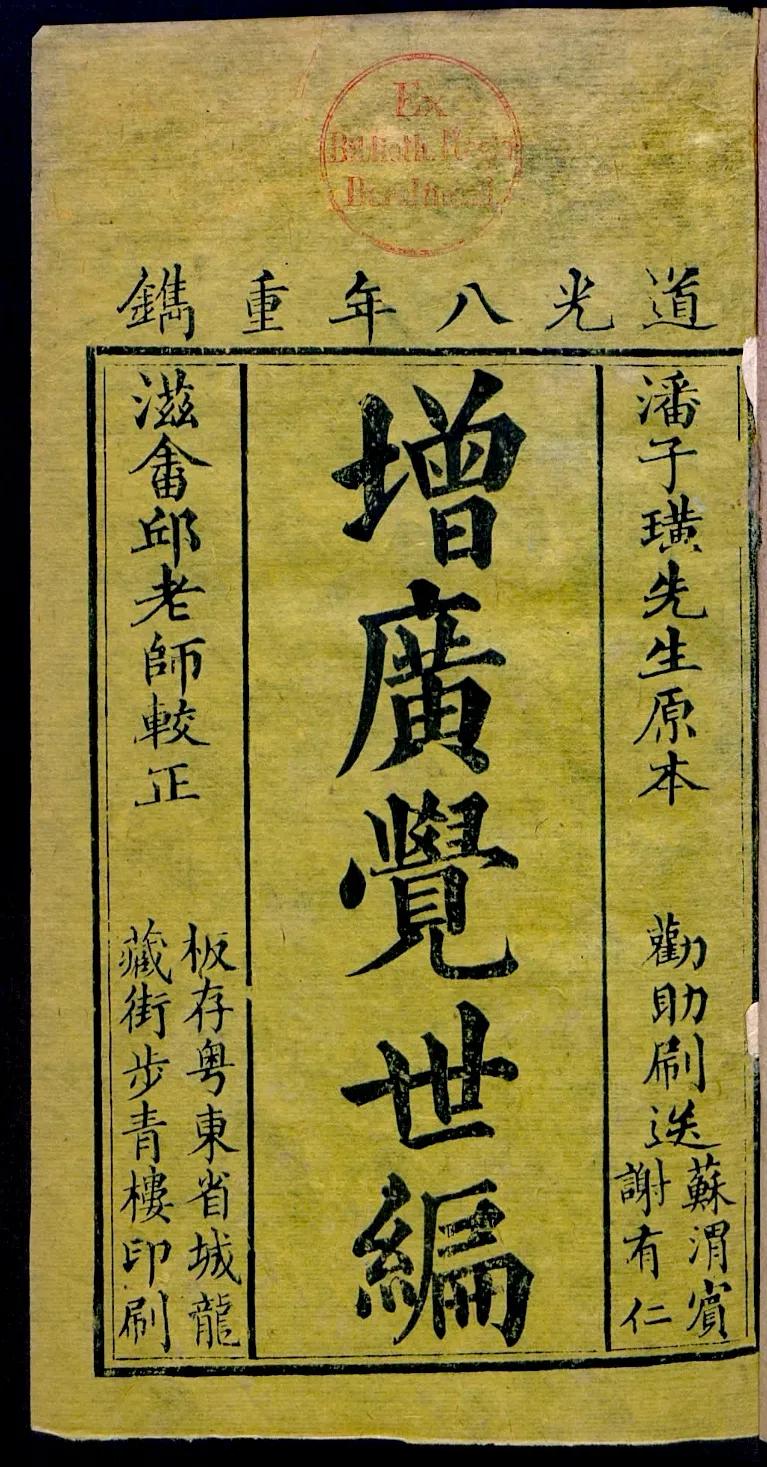 Ex
Biblioth. Regia
Berolinensi.
道光八年重鐫
潘子璜先生原本
勸助刷送
蘇渭賓
謝有仁
增廣覺世編
滋畬邱老師較正
板存粵東省城龍
藏街步青樓印刷